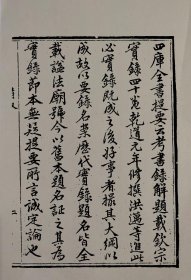 四庫全書提要云考書錄解題載欽宗
實錄四十卷乾道元年修撰洪邁等進此
必實錄既成之後好事者撮其大綱以
成故以要錄名案歷代實錄題名皆全
載謚法廟號今以舊本題名証之其為
實錄節本無疑提要所言誠定論也